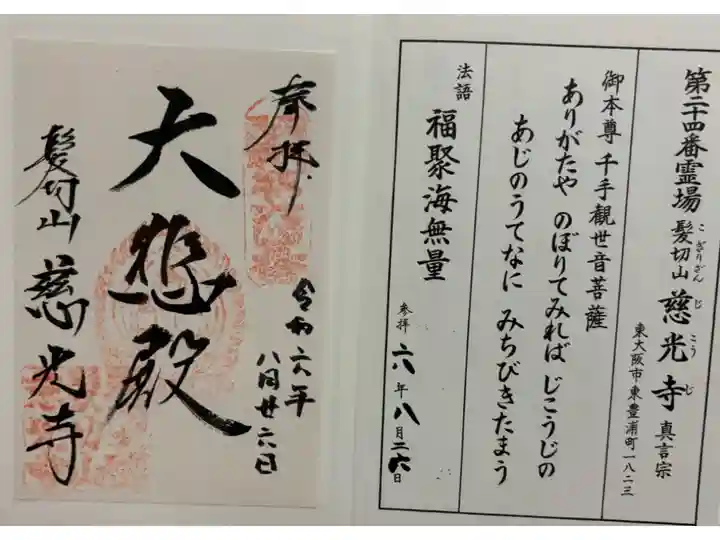 第二十四番霊場 髪切山 慈光寺 真言宗
こぎりざん じこうじ
東大阪市東豊浦町一八二三
御本尊 千手觀世音菩薩
ありがたや のぼりてみれば じこうじの
あじのうてなに みちびきたまう
法語 福聚海無量
参拝 六年八月二六日
奉拝
令和六年
八月廿六日
大悲殿
髪切山 慈光寺